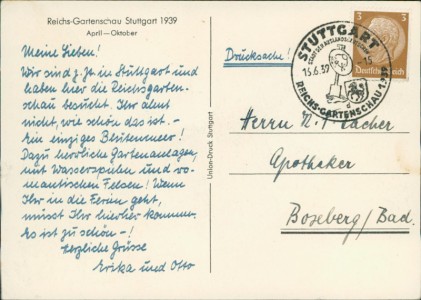 Reichs-Gartenschau Stuttgart 1939
April—Oktober
Meine Lieben!
Wir sind z. Zt. in Stuttgart und
haben hier die Reichsgarten-
schau besucht. Ihr ahnt
nicht, wie schön das ist. –
Ein einziges Blütenmeer!
Dazu herrliche Gartenanlagen,
mit Wasserspielen und ro-
mantischen Felsen! Wenn
Ihr in die Ferien geht,
müsst Ihr hierher kommen.
Es ist zu schön –!
Herzliche Grüsse
Erika und Otto
Union-Druck Stuttgart
Drucksache!
STUTTGART
STADT DER AUSLANDSDEUTSCHEN
15.6.39 - 15
REICHS-GARTENSCHAU
3 3
Deutsches Reich
Herrn
Apotheker
Boxberg/Bad.